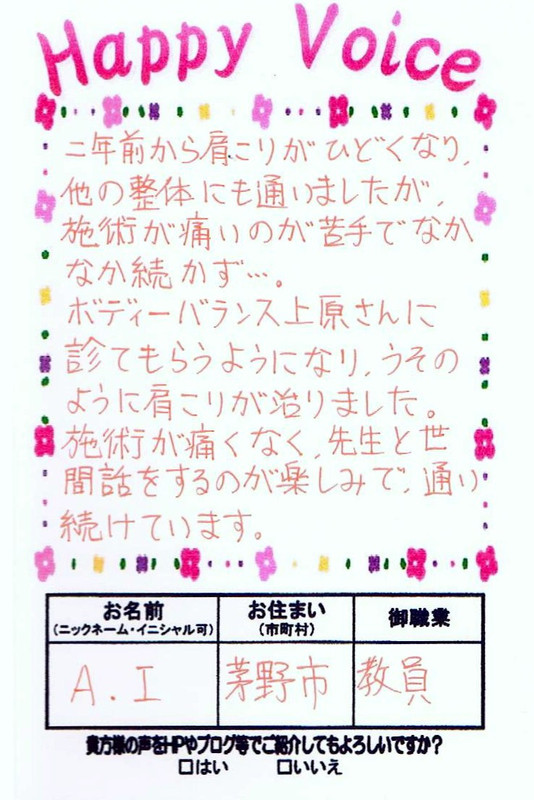 Happy Voice
二年前から肩こりがひどくなり,
他の整体にも通いましたが,
施術が痛いのが苦手でなか
なか続かず…。
ボディーバランス上原さんに
診てもらうようになり,うその
ように肩こりが治りました。
施術が痛くなく,先生と世
間話をするのが楽しみで,通い
続けています。
お名前 お住まい 御職業
(ニックネーム・イニシャル可) (市町村)
A.I 茅野市 教員
貴方様の声をHPやブログ等でご紹介してもよろしいですか?
□はい □いいえ